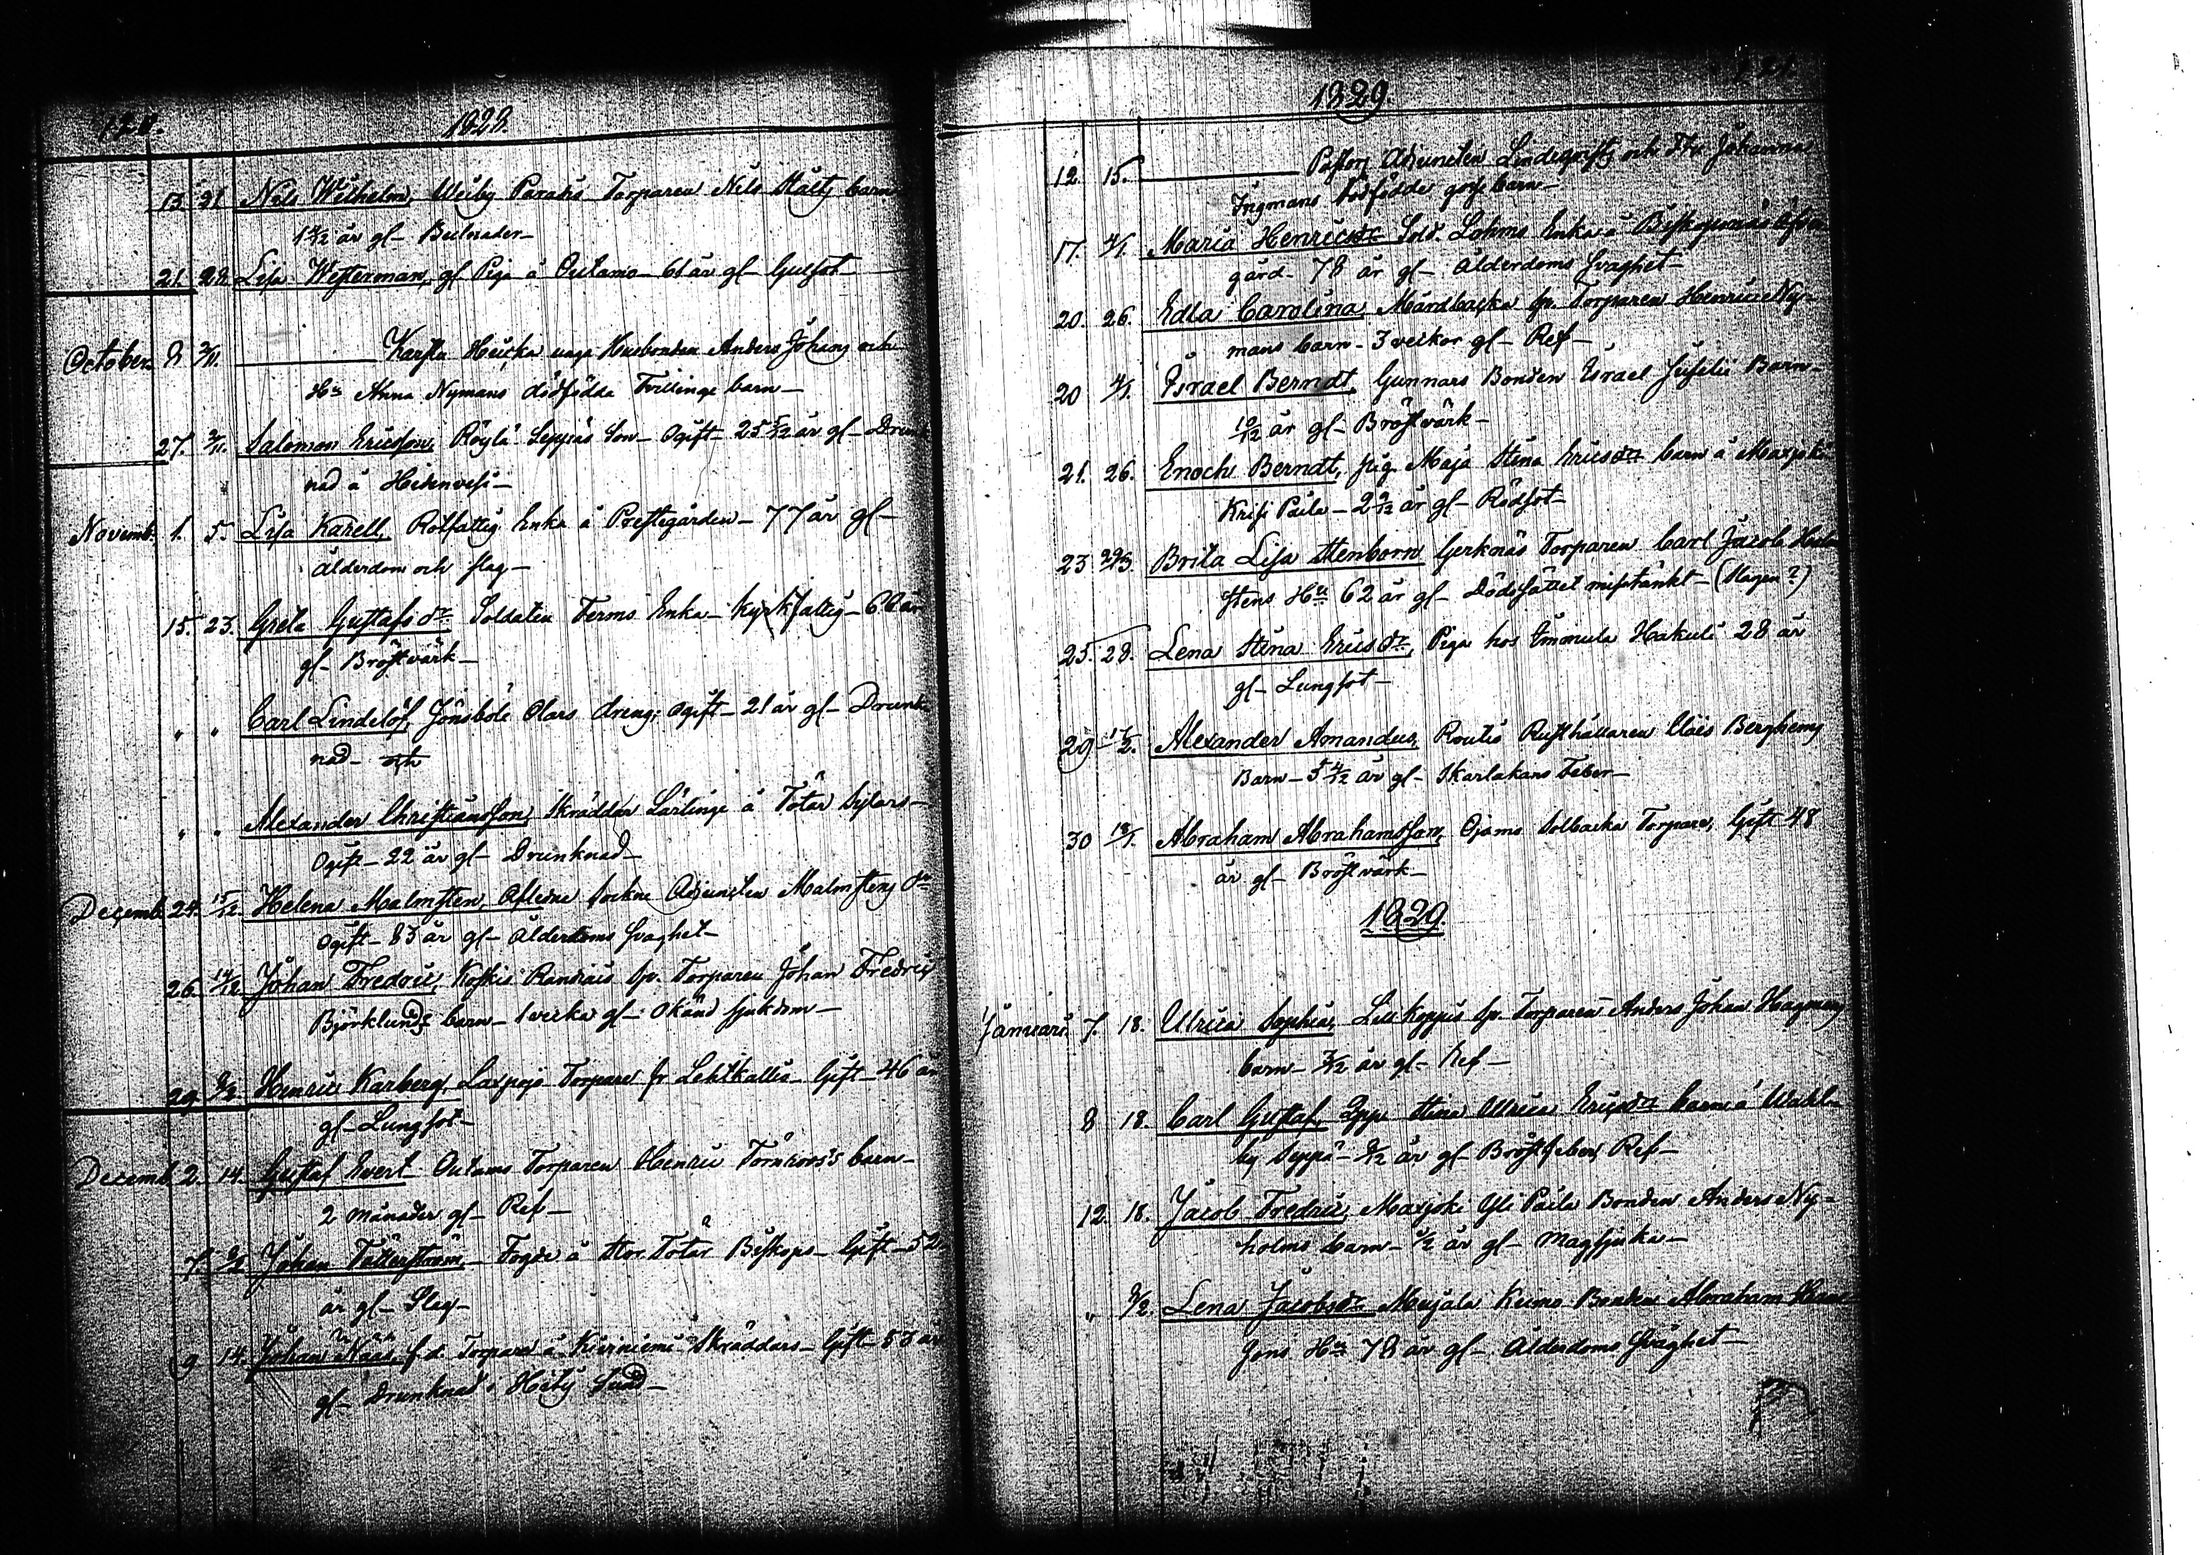 120.
1828.
13 21 Nils Wilhelm, Weiby Paradis Torparen Nils Ståltz barn
1 4/12 år gl- Bullnader-
21. 28 Lisa Westerman, gl Piga å Outamo- 61 år gl- Gulsot-
October 8 2/11. Karstu Heicka unga Husbonden Anders Johans och
Hu Anna Nymans dödfödda Tvillinge barn-
27. 2/11. Salomon Ericsson, Röylä Seppäs Son- Ogift- 25 5/12 år gl- Drunk
nad å Hidenvesi-
Novemb. 1. 5. Lisa Karell, Rotfattig Enka å Prestegården- 77 år gl-
Ålderdom och slag-
15. 23. Greta Gustafsdr Soldaten Ferms Enka- kyrkfattig- 66 år
gl- Bröstvärk-
" " Carl Lindelöf, Jönsböle Olars dreng; ogift- 21 år gl- Drunk
nad- och
" " Alexander Christiansson, Skräddar Lärlinge å Totar Sylars-
Ogift- 22 år gl- Drunknad-
Decemb 24. 15/12 Helena Malmsten, Afledne Sockne Adjuncten Malmstens dr
Ogift- 83 år gl- Ålderdoms svaghet-
26. 14/12 Johan Fredric, Koskis sp. Torparen Johan Fredric
Björklunds barn- 1 vecka gl- Okänd sjukdom-
29 Henric Karberg, Laxpojo Torpare fr Lehtkallio- Gift- 46 år
gl- Lungsot-
Decemb 2. 14. Gustaf Evert Outamo Torparen Henric Törnroos's barn-
2 månader gl- Ref-
7. Johan Fällström- Fogde å Stor Totar Biskops- Gift- 52
år gl- Slag-
9 14. Johan Nääs, f.d. Torpare å Kirniemi Skräddars- Gift- 53 år
gl- Drunknad i Sund-
121.
1829.
12. 15. Pastors Adjuncten Lindeqvists och Fru Johanna
Ingmans dödfödde gosse barn-
17. 4/1. Maria Henricsdr Sold. Lohms Enka å Biskopsnäs Öfver
gård- 78 år gl- Ålderdoms svaghet-
20. 26. Edla Carolina, Mårdbacka sp. Torparen Henric Ny-
mans barn- 3 veckor gl- Ref-
20 4/1. Israel Berndt, Gunnars Bonden Israel Juselii Barn-
10/12 år gl- Bröstvärk-
21. 26. Enoch Berndt, pig. Maja Stina Ericsdr barn å Maxjoki
Krisi Påila- 2 9/12 år gl- Rödsot-
23 Brita Lisa Stenborn Gerknäs Torparen Carl Jacob
stens Hu 62 år gl- Dödssättet misstänkt- (Slagen?)
25. 28. Lena Stina Ericsdr, Piga hos Immula Hakuli 28 år
gl- Lungsot-
29 Alexander Amandus, Routio Rusthållaren Claës Berghems
Barn- 5 4/12 år gl- Skarlakans Feber-
30 18/1. Abraham Abrahamsson, Ojamo Solbacka Torpare, Gift 48
år gl- Bröstvärk-
1829.
Januari. 7. 18. Ulrica Sophia, Lill Koppis sp. Torparen Anders Johan Hagmans
barn- 3/12 år gl- Ref-
8 18. Carl Gustaf, Stina Ulrica Ericsdr barn å Wahla
by Seppä- 9/12 år gl- Bröstfeber, Ref-
12. 18. Jacob Fredric, Maxjoki Yli Påila Bonden Anders Ny-
holms barn- 1/2 år gl- Magsjuka-
" 9/2. Lena Jacobsdr Maijala Kumo Bonden Abraham
sons Hu 78 år gl- Ålderdoms svaghet-